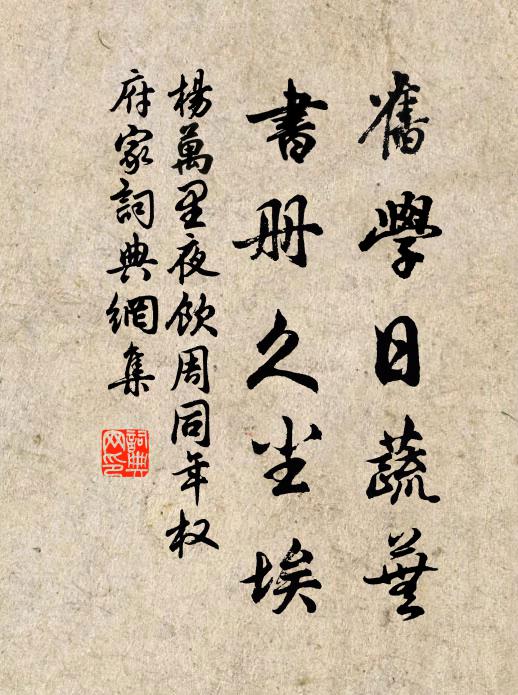 舊學日蔬蕪
書册久尘埃
楊萬里夜飲周同年权
府家詞典網集
詞典网印